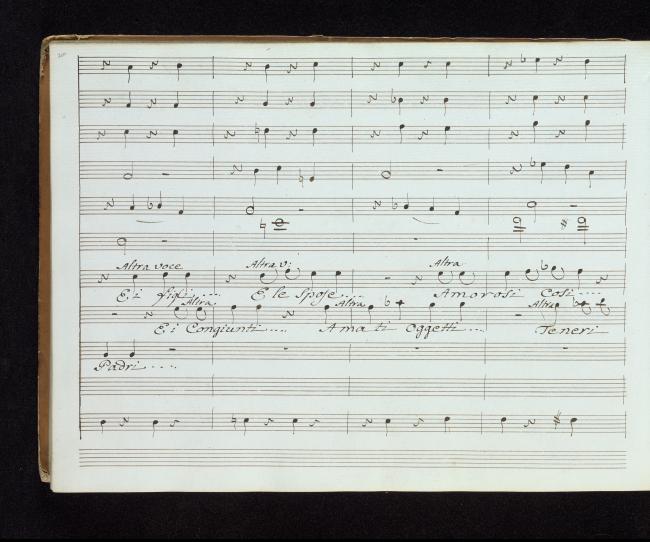 Altra voce Altra vi Altra
Ei figli .... E le Spose .... Amorosi Cosi ....
Altra Altra Altra
Ei Congiunti .... Amati Oggetti ... Teneri
Padri ....